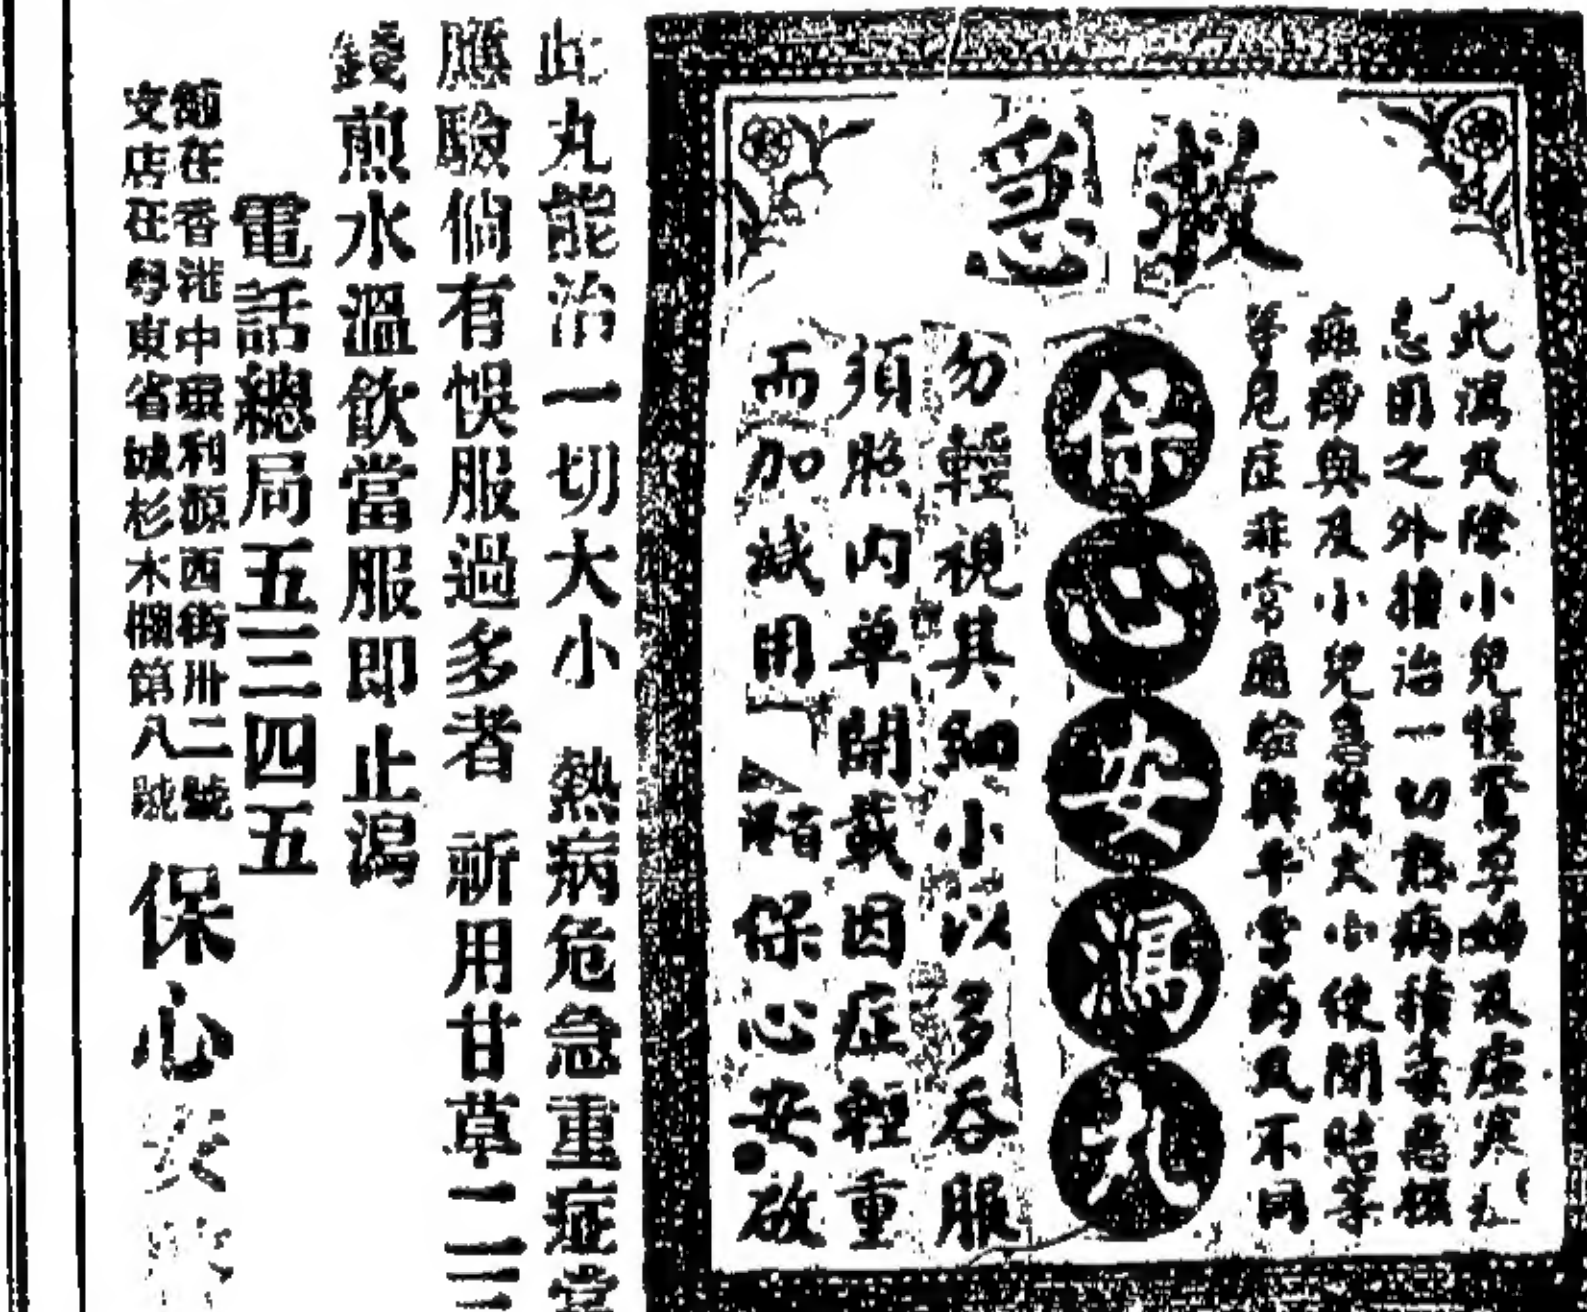 救急
此瀉丸除小兒慢驚孕婦及虛寒
忌用之外擅治一切熱病積毒惡核
癰瘡與及小兒急驚大小便閉結等
等危症非常應驗與平常药丸不同
保心安瀉丸
勿輕視其細小以多吞服
須照內单開載因症輕重
而加減用 保心安啟
此丸能治一切大小 熱病危急重症
應驗倘有悞服過多者 祈用甘草二三
錢煎水溫飲當服即止瀉
電話總局五三四五
舖在香港中環利源西街卅二號
支店在粤東省城杉木欄第八號
保心安